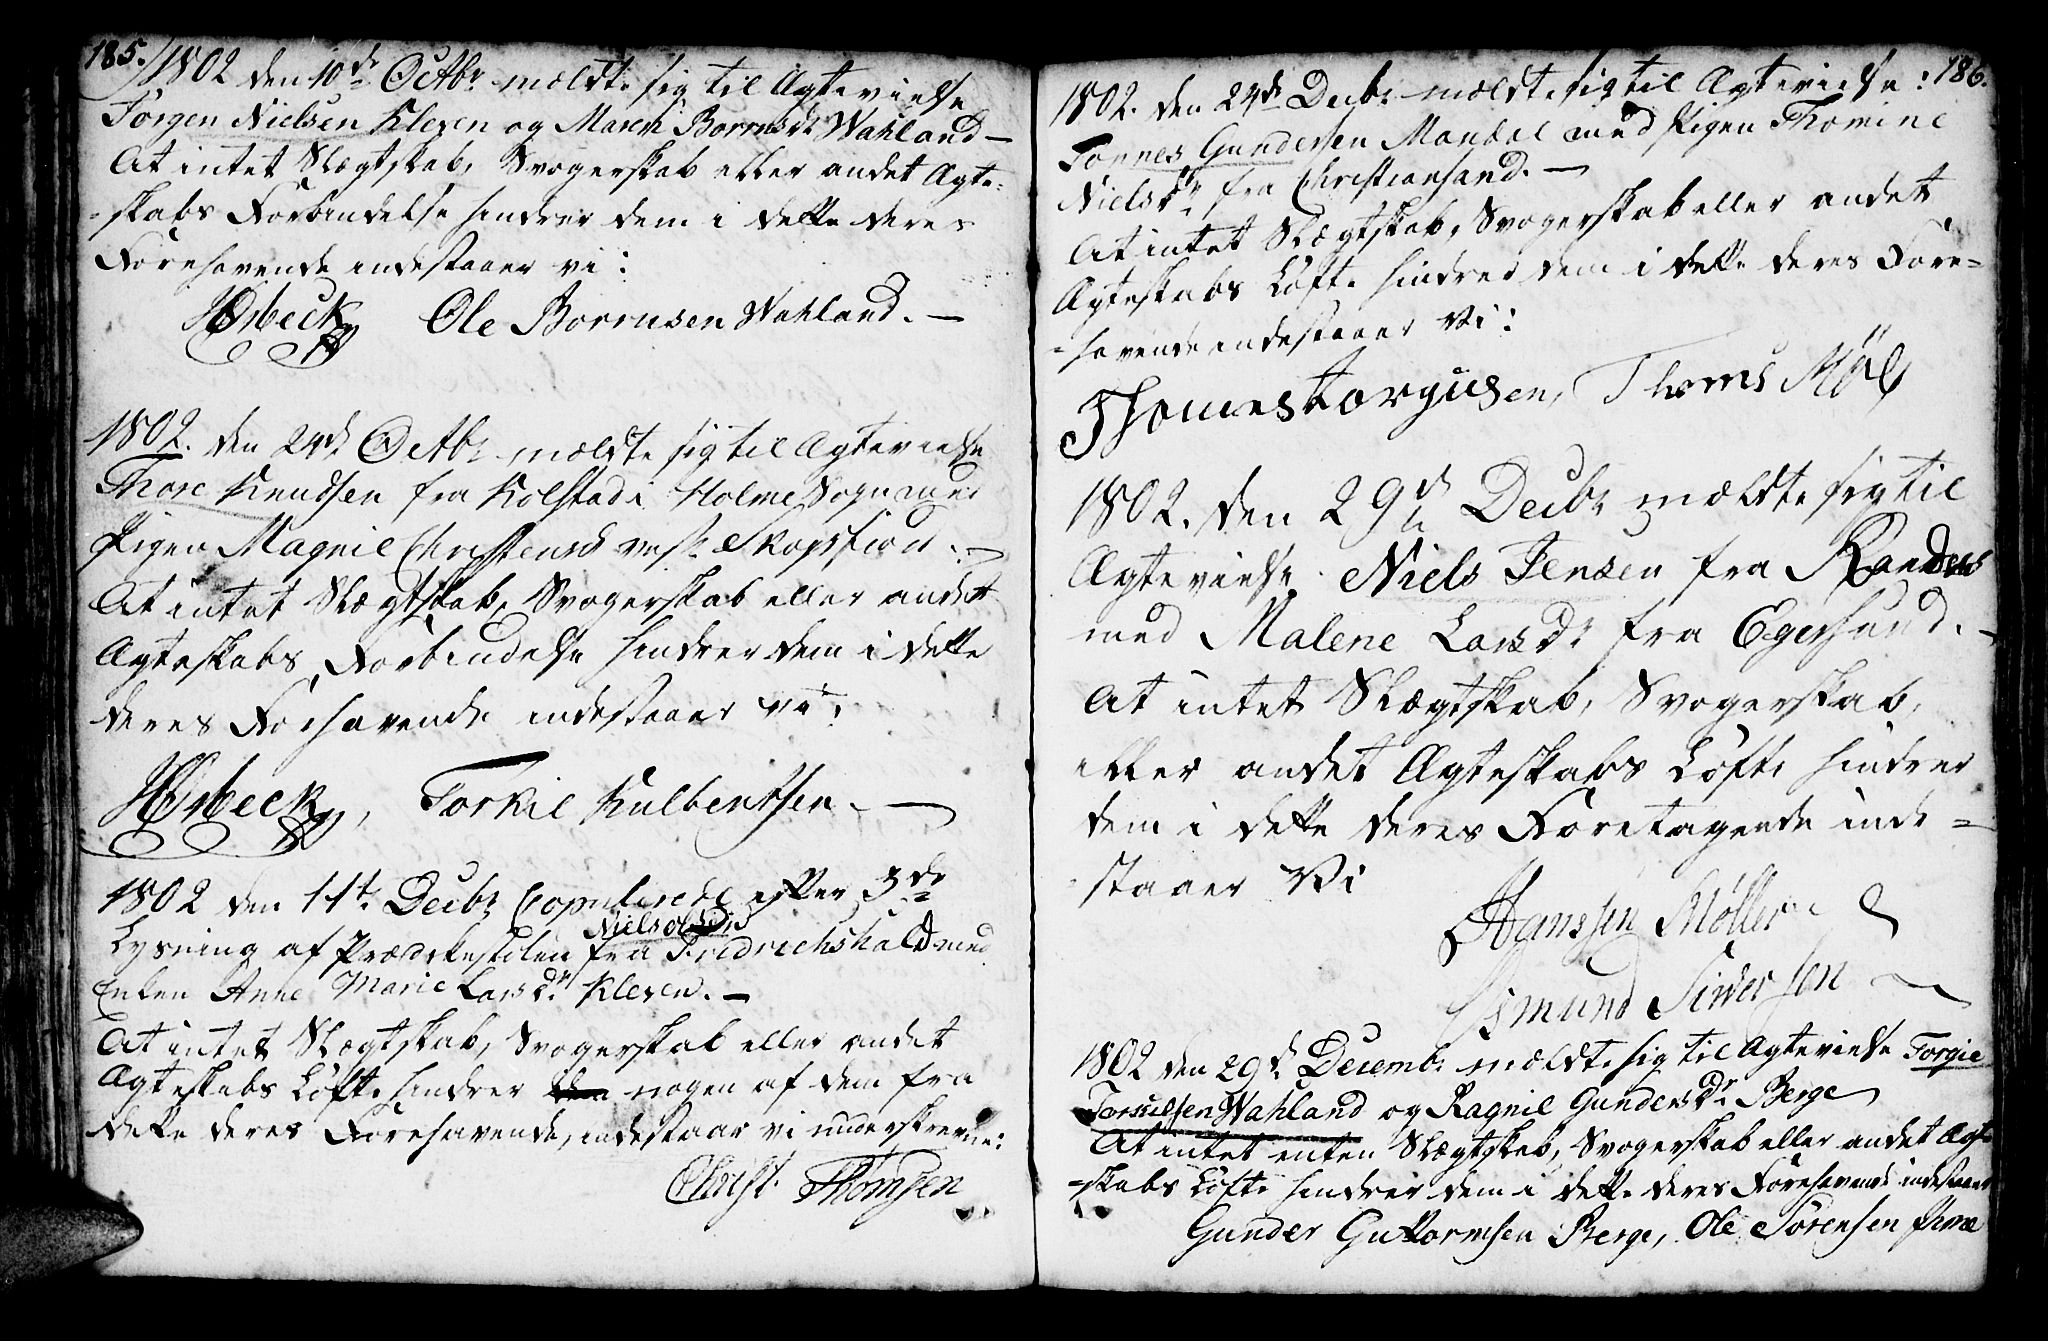 185.
1802 den 10de Octbr mældte sig til Ægtevielse
Jørgen Nielsen Kleven og Maren Borrusdr Wahland –
At intet Slægtskab, Svogerskab eller andet Ægte-
-skabs Forbindelse hindrer dem i dette deres
Forehavende indestaaer vi:
Ole Borrusen Wahland. –
1802. den 24de Octbr mældte sig til Ægtevielse
Thore Knudsen fra Kolstad i Holme Sogn med
Pigen Magnil Christensd
At intet Slægtskab, Svogerskab eller andet
Ægteskabs Forbindelse hindrer dem i dette
deres Forhavende indestaaer vi:
Torkil Kulbentsen. –
1802 den 11te Decbr Copulerede efter 3de
Niels Olsen
Lysning af Prædikestolen fra Fredrichshald med
Enken Anne Marie Larsdr Kleven. –
At intet Slægtskab, Svogerskab eller andet
Ægteskabs Løfte hindrer nogen af dem fra
dette deres Forehavende, indestaar vi underskrevne:
Christ. Thomsen
186.
1802. den 24de Decbr mældte sig til Ægtevielse:
Tønnes Gundersen Mandal med Pigen Thomine
Nielsdr fra Christiansand. –
At intet Slægtskab, Svogerskab eller andet
Ægteskabs Løfte hindrer dem i dette deres Fore-
-havende indestaaer Vi:
1802. den 29de Decbr mældte sig til
Ægtevielse Niels Jensen fra Randers
med Malene Larsdr fra Egersund. –
At intet Slægtskab, Svogerskab,
eller andet Ægteskabs Løfte hindrer
dem i dette deres Foretagende inde-
-staaer Vi
Hanssen Møller
Osmund Siversen
1802 den 29de Decembr mældte sig til Ægtevielse Torgie
Torkilsen Wahland og Ragnil Gundersdr Berge
At intet enten Slægtskab, Svogerskab eller andet Ægte
-skabs Løfte hindrer dem i dette deres Forehavende indestaaer
Gunder Guttormsen Berge, Ole Sørensen